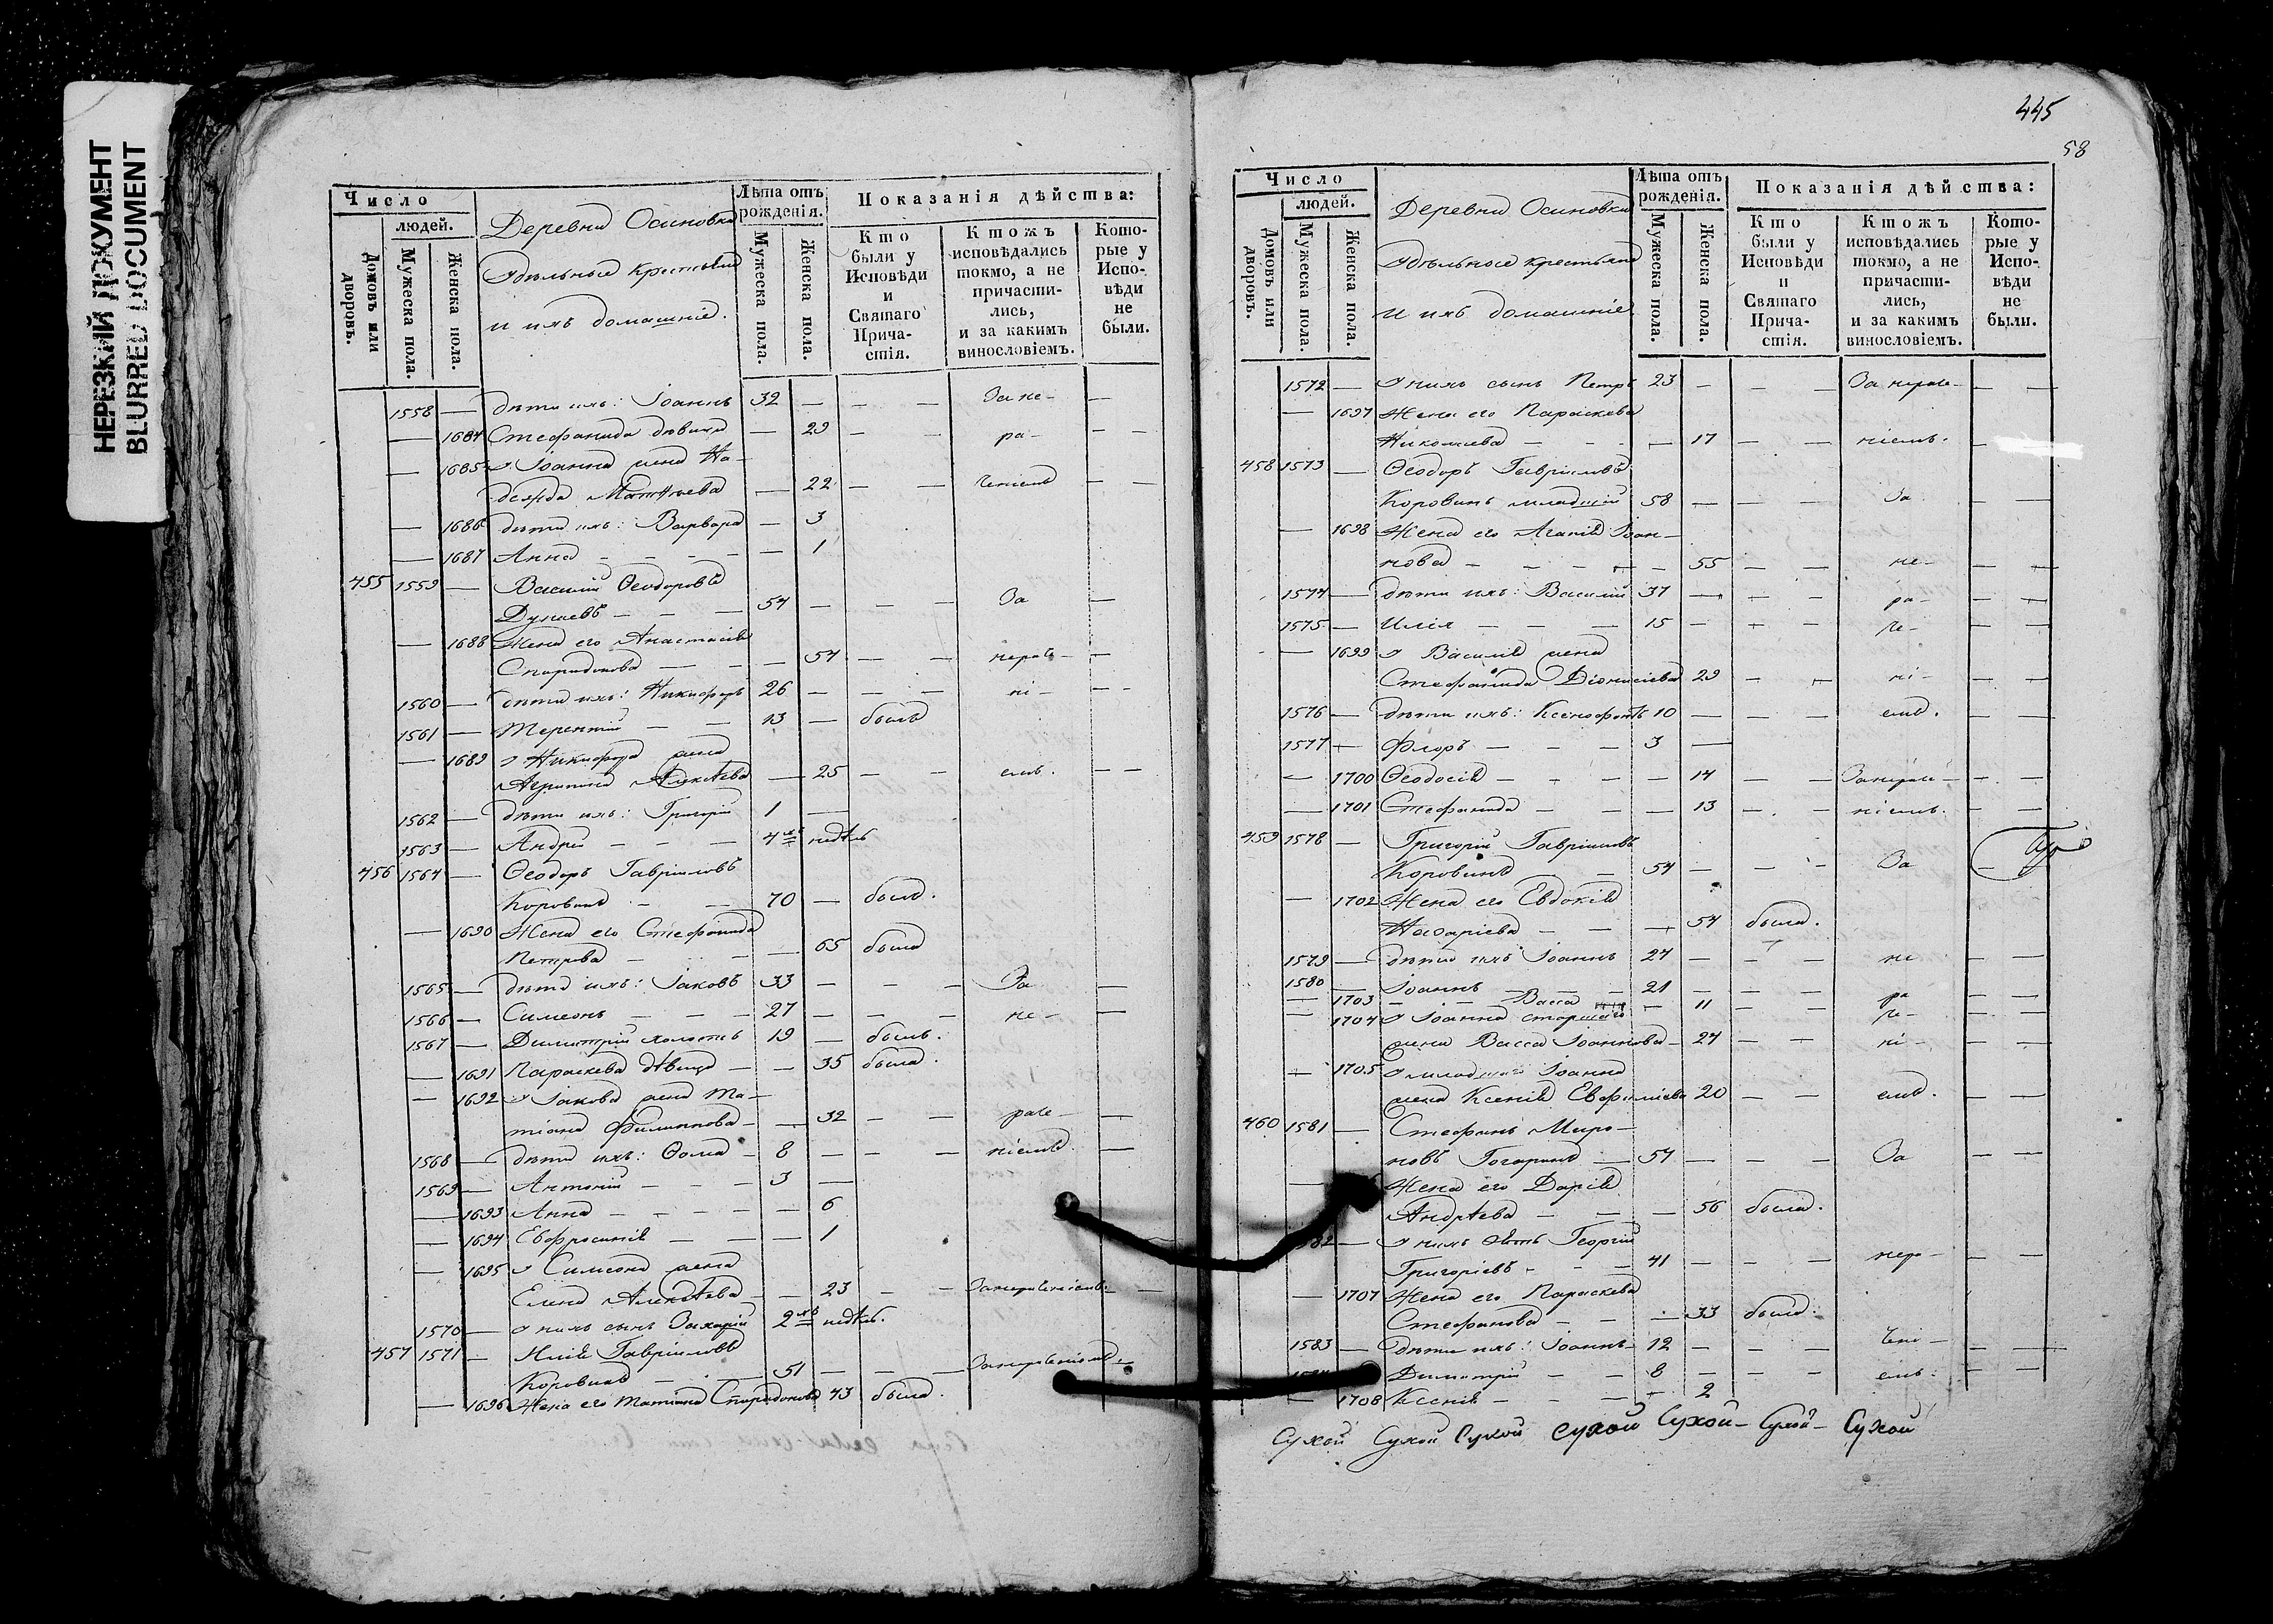 НЕРЕЗКИЙ ДОКУМЕНТ
BLURRED DOCUMENT
Число
людей.
Домовъ или дворовъ.
Мужеска пола.
Женска пола.
Деревни Осиновки
Удѣльные крестьяне
и ихъ домашніе.
Лѣта отъ рожденія.
Мужеска пола.
Женска пола.
Показанія дѣйства:
Кто были у Исповѣди и Святаго Причастія.
Ктожъ исповѣдались токмо, а не причастились, и за какимъ винословіемъ.
Которые у Исповѣди не были.
1558 — дѣти ихъ: Іоаннъ 32 — — — За не- —
— 1684 Стефанида дѣвица — 29 — — ра- — —
— 1685 у Іоанна жена На-
дежда Матѳѣева — 22 — — ченіемъ — —
— 1686 дѣти ихъ: Варвара — 3
— 1687 Анна — — — — — 1
455 1559 — Василій Ѳеодоровъ
Дунаевъ — — — 54 — — — За —
— 1688 Жена его Анастасія
Спиридонова — — — 54 — — нераче- —
1560 — дѣти ихъ: Никифоръ 26 — — — ні- — —
1561 — Терентій — — 13 — былъ
— 1689 у Никифора жена
Агрипина Алексѣева — 25 — — емъ. — —
1562 — дѣти ихъ: Григорій 1 —
1563 — Андрей — — — 4хъ недѣль
456 1564 — Ѳеодоръ Гавріиловъ
Коровинъ — — 70 — былъ.
— 1690 Жена его Стефанида
Петрова — — — 65 была
1565 — дѣти ихъ: Іаковъ 33 — — — За —
1566 — Симеонъ — — — 27 — — — не- —
1567 — Димитрій холостъ 19 — былъ.
— 1691 Параскева дѣвица — — 35 была.
— 1692 у Іакова жена Та-
тіана Филиппова — — 32 — — раче- —
1568 — дѣти ихъ: Ѳома — 8 — — — ніемъ. —
1569 — Антоній — — — 3 —
— 1693 Анна — — — — — 6
— 1694 Евфросинія — — — 1
— 1695 у Симеона жена
Елена Алексѣева — — 23 — — За нераченіемъ. —
1570 — у нихъ сынъ Захарій 2хъ недѣль.
457 1571 — Илія Гавріиловъ
Коровинъ — — 51 — — — За нераченіемъ —
— 1696 Жена его Татіана Спиридонова 43 была.
445
58
Число
людей.
Домовъ или дворовъ.
Мужеска пола.
Женска пола.
Деревни Осиновки
Удѣльные крестьяне
и ихъ домашніе
Лѣта отъ рожденія.
Мужеска пола.
Женска пола.
Показанія дѣйства:
Кто были у Исповѣди и Святаго Причастія.
Ктожъ исповѣдались токмо, а не причастились, и за какимъ винословіемъ.
Которые у Исповѣди не были.
1572 — у нихъ сынъ Петръ 23 — — — За нераче- — —
— 1697 Жена его Параскева
Николаева — — — — 17 — — ніемъ. —
458 1573 — Ѳеодоръ Гавріиловъ
Коровинъ младшій 58 — — — За — —
— 1698 Жена его Агапія Іоан-
нова — — — — — 55 — — не- — —
1574 — дѣти ихъ: Василій 37 — — — ра- — —
1575 — Илія — — — 15 — — — че- — —
— 1699 у Василія жена
Стефанида Діонисіева 29 — — ні- — —
1576 — дѣти ихъ: Ксенофонтъ 10 — — — емъ. — —
1577 — Флоръ — — — 3 —
— 1700 Ѳеодосія — — — — 14 — — За нераче- — —
— 1701 Стефанида — — — 13 — — ніемъ. — —
459 1578 — Григорій Гавріиловъ
Коровинъ — 54 — — — За —
— 1702 Жена его Евдокія
Назаріева — — — 54 была.
1579 — дѣти ихъ Іоаннъ 27 — — — не — —
1580 — Іоаннъ — — — 21 — — —
— 1703 — — — Васса — 11 — — ра — —
— 1704 у Іоанна старшаго че- — —
жена Васса Іоаннова — 24 — — ні- — —
— 1705 у младшаго Іоанна
жена Ксенія Евфиміева 20 — — емъ. — —
460 1581 — Стефанъ Миро-
новъ Гогаринъ — 57 — — — За — —
— Жена его Дарія
Андрѣева — — — 56 была.
1582 — у нихъ зять Георгій
Григоріевъ — — — 41 — — — нера- — —
— 1707 Жена его Параскева
Стефанова — — — 33 была.
1583 — дѣти ихъ: Іоаннъ — 12 — — — чені- — —
Димитрій — — 8 — — — емъ. — —
— 1708 Ксенія — — — — 2
Сухой Сухой Сухой Сухой Сухой — Сухой — Сухой